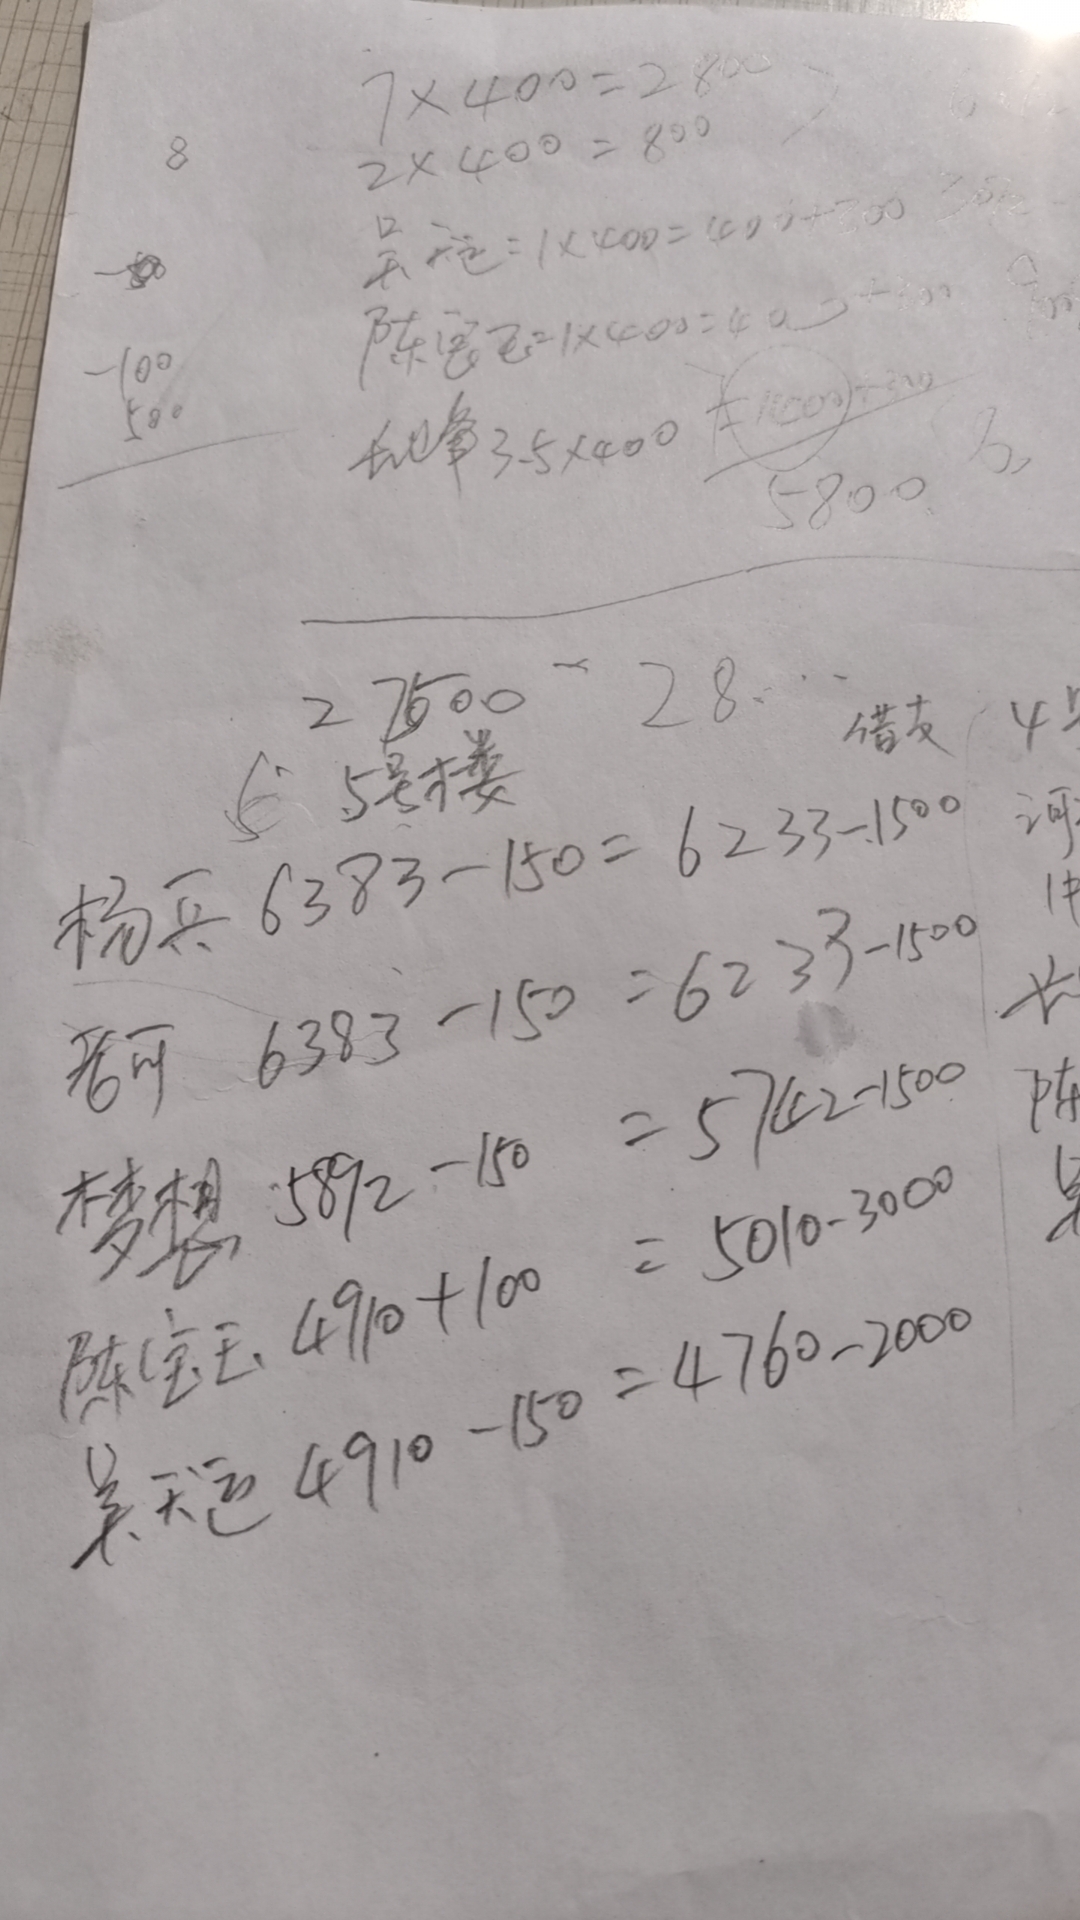 7×400=2800
8
2×400=800
吴天运=1×400=400+300
陈宝玉=1×400=400+300
-100
500
3.5×400 =1400+300
5800
27500 - 28...
借支
5号楼
杨兵 6383-150=6233-1500
6383-150=6233-1500
梦想 5892-150=5742-1500
陈宝玉 4910+100=5010-3000
吴天运 4910-150=4760-2000